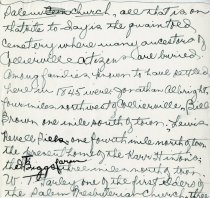 Palem Church, all that is on
that site to day is the quaint old
Cemetery where many ancestors of
Collierville citizens are buried.
Among families known to have settled
here in 1845 were Jonathan Albright
four miles northwest of Collierville, Bill
Brown one mile south of town. Lewis
Biggs, one fourth mile north of town
the present home of the
Biggs farm
the three miles north of town
W. T. one of the first elders of
the Salem Presbyterian Church, three